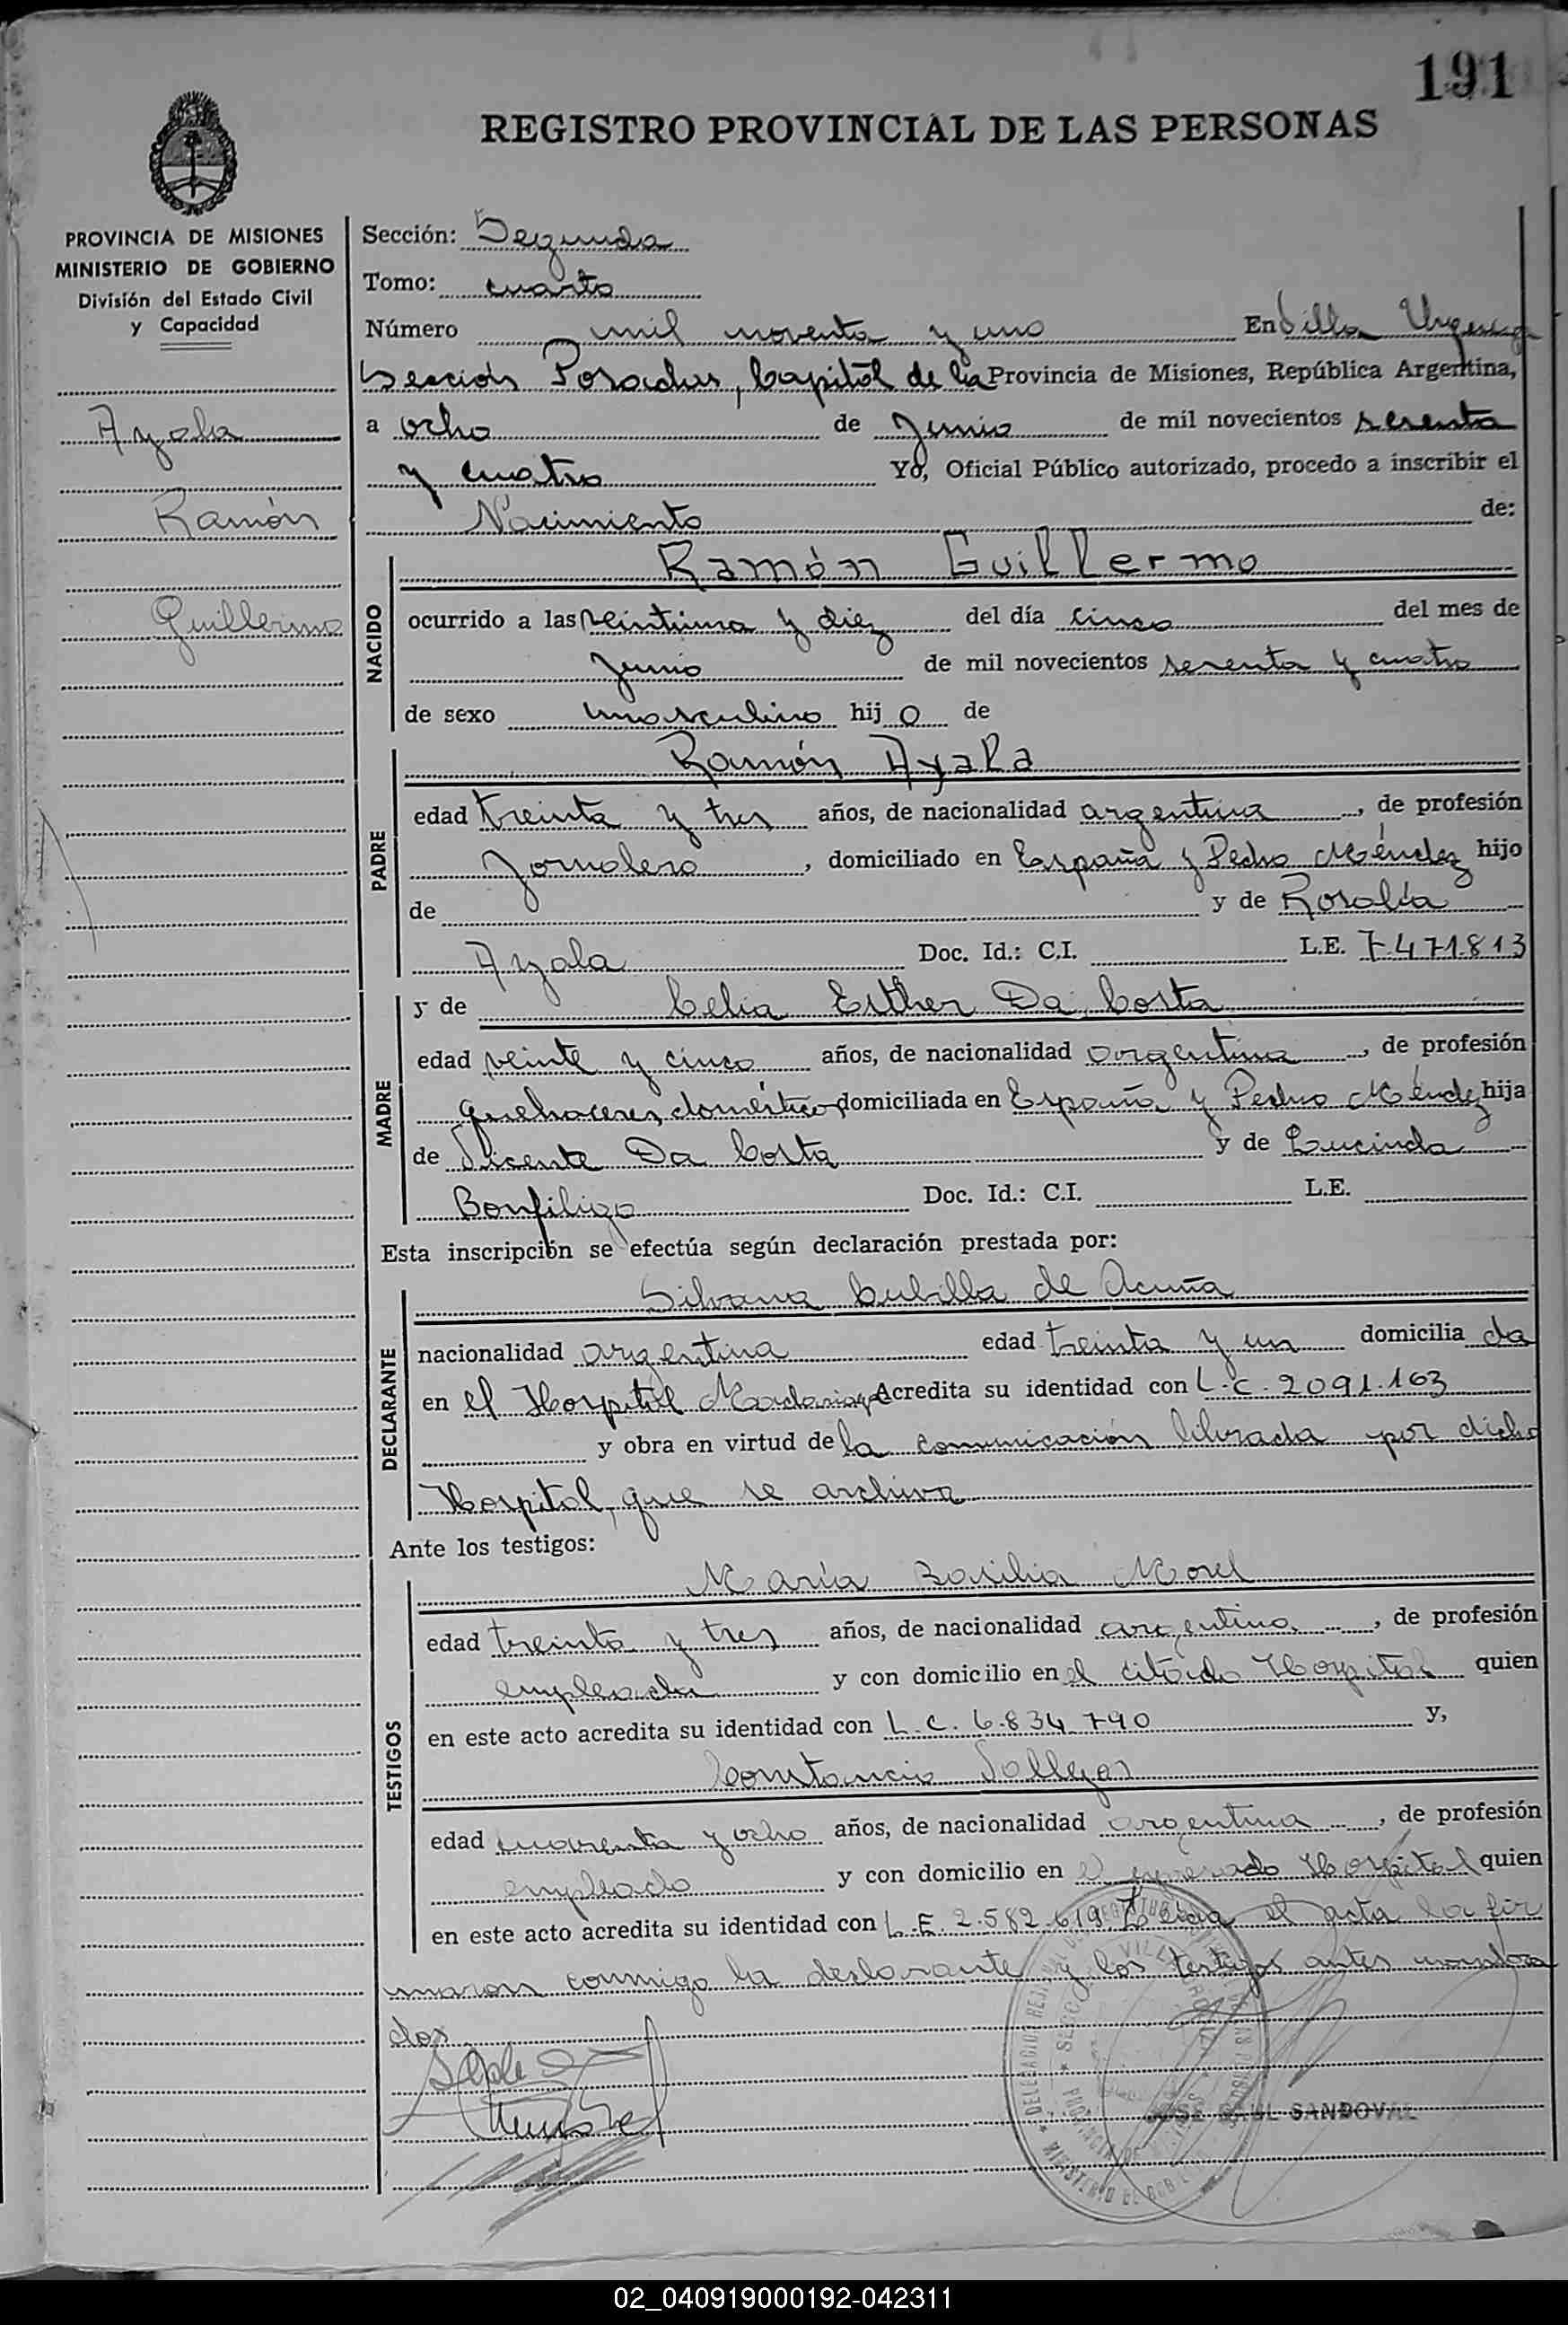 191
REGISTRO PROVINCIAL DE LAS PERSONAS
PROVINCIA DE MISIONES
MINISTERIO DE GOBIERNO
División del Estado Civil
y Capacidad
Ayala
Ramón
Guillermo
Sección: Segunda
Tomo: cuarto
Número mil noventa y uno En Villa Urquiza
Sección Posadas, Capital de la Provincia de Misiones, República Argentina,
a ocho de Junio de mil novecientos sesenta
y cuatro Yo, Oficial Público autorizado, procedo a inscribir el
Nacimiento de:
NACIDO
Ramón Guillermo
ocurrido a las veintiuna y diez del día cinco del mes de
Junio de mil novecientos sesenta y cuatro
de sexo masculino hijo de
PADRE
Ramón Ayala
edad treinta y tres años, de nacionalidad argentina, de profesión
Jornalero, domiciliado en España y Pedro Méndez hijo
de y de Rosalía
Ayala Doc. Id.: C.I. L.E. 7.471.813
MADRE
y de Celia Esther Da Costa
edad veinte y cinco años, de nacionalidad argentina, de profesión
quehaceres domésticos domiciliada en España y Pedro Méndez hija
de Vicente Da Costa y de Lucinda
Bonfiligo Doc. Id.: C.I. L.E.
Esta inscripción se efectúa según declaración prestada por:
DECLARANTE
Silvana Cubilla de Acuña
nacionalidad argentina edad treinta y un domicilia da
en el Hospital Madariaga Acredita su identidad con L.C. 2.091.163
y obra en virtud de la comunicación librada por dicho
Hospital, que se archiva
Ante los testigos:
TESTIGOS
María Basilia Morel
edad treinta y tres años, de nacionalidad argentina, de profesión
empleada y con domicilio en el citado Hospital quien
en este acto acredita su identidad con L.C. 6.834.790 y,
Constancio Vallejos
edad cuarenta y ocho años, de nacionalidad argentina, de profesión
empleado y con domicilio en el expresado Hospital quien
en este acto acredita su identidad con L.E. 2.582.619 Leida el acta la fir
maron conmigo la declarante y los testigos antes nombra
dos
JOSE RAUL SANDOVAL
02_040919000192-042311